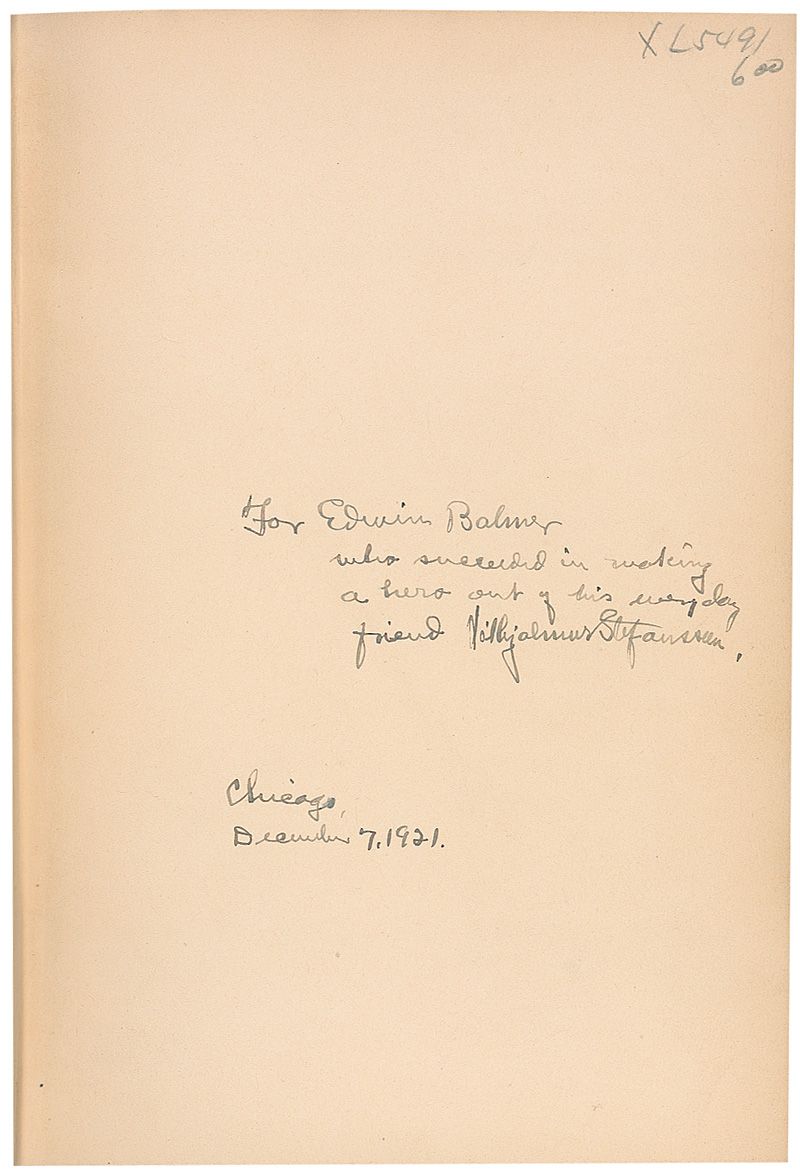 X L5491
6 00
For Edwin Balmer
who succeeded in making
a hero out of his everyday
friend Vilhjalmur Stefansson,
Chicago,
December 7, 1921.